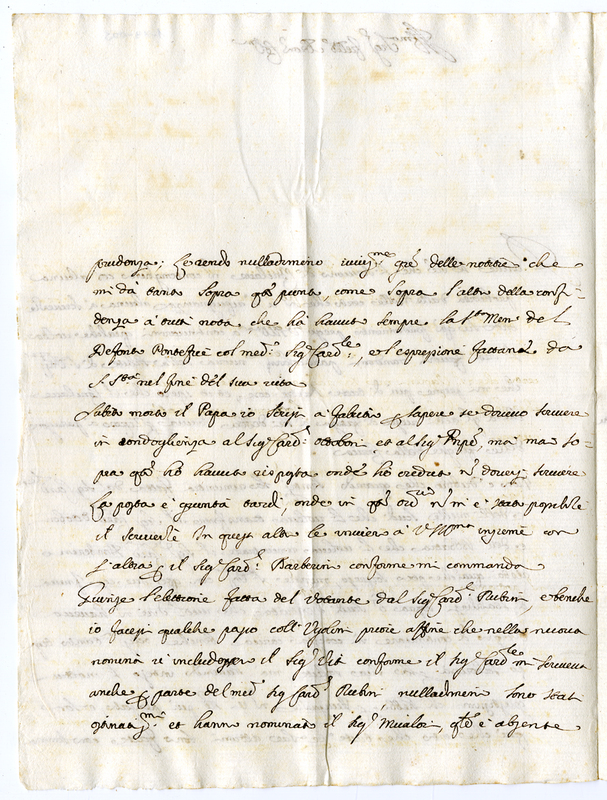 prudenza; le rendo nulladimeno inniss.me gre delle notitie che
mi dà tanto sopra qto punto, come sopra l'altro della confi-
denza à tutti nota, che hà havuto sempre la Sta Mem del
Defonto Pontefice col med.o Sigr Card.le, e l'espressione fattane da
S. Sta nel fine del sua vita
Subito morto il Papa io scrissi à sapere se dovevo scrivere
in condoglienza al Sigr Card.l Ottoboni et al Sigr Prpe, mà mai so-
pra qto hò havuto risposta onde hò creduto nō dover scrivere
La posta è giunta tardi, onde in qto ordrio nō m'è stato possibile
il scriverle In quest' altro le invierò à V. Illma insieme con
l'altra il Sigr Card.l Barberini conforme mi commanda
Giunse l'elettione fatta del votante dal Sigr Card.l Rubini, e benche
io facessi qualche passo coll' priore affine che nella nuova
nomina vi includesse il Sigr Vità conforme il Sigr Card.le mi scriveva
anche parte del med.o Sigr Card.l Rubini, nulladimeno sono stati
ostinatissmi et hanno nominato il Sigr qle è absente